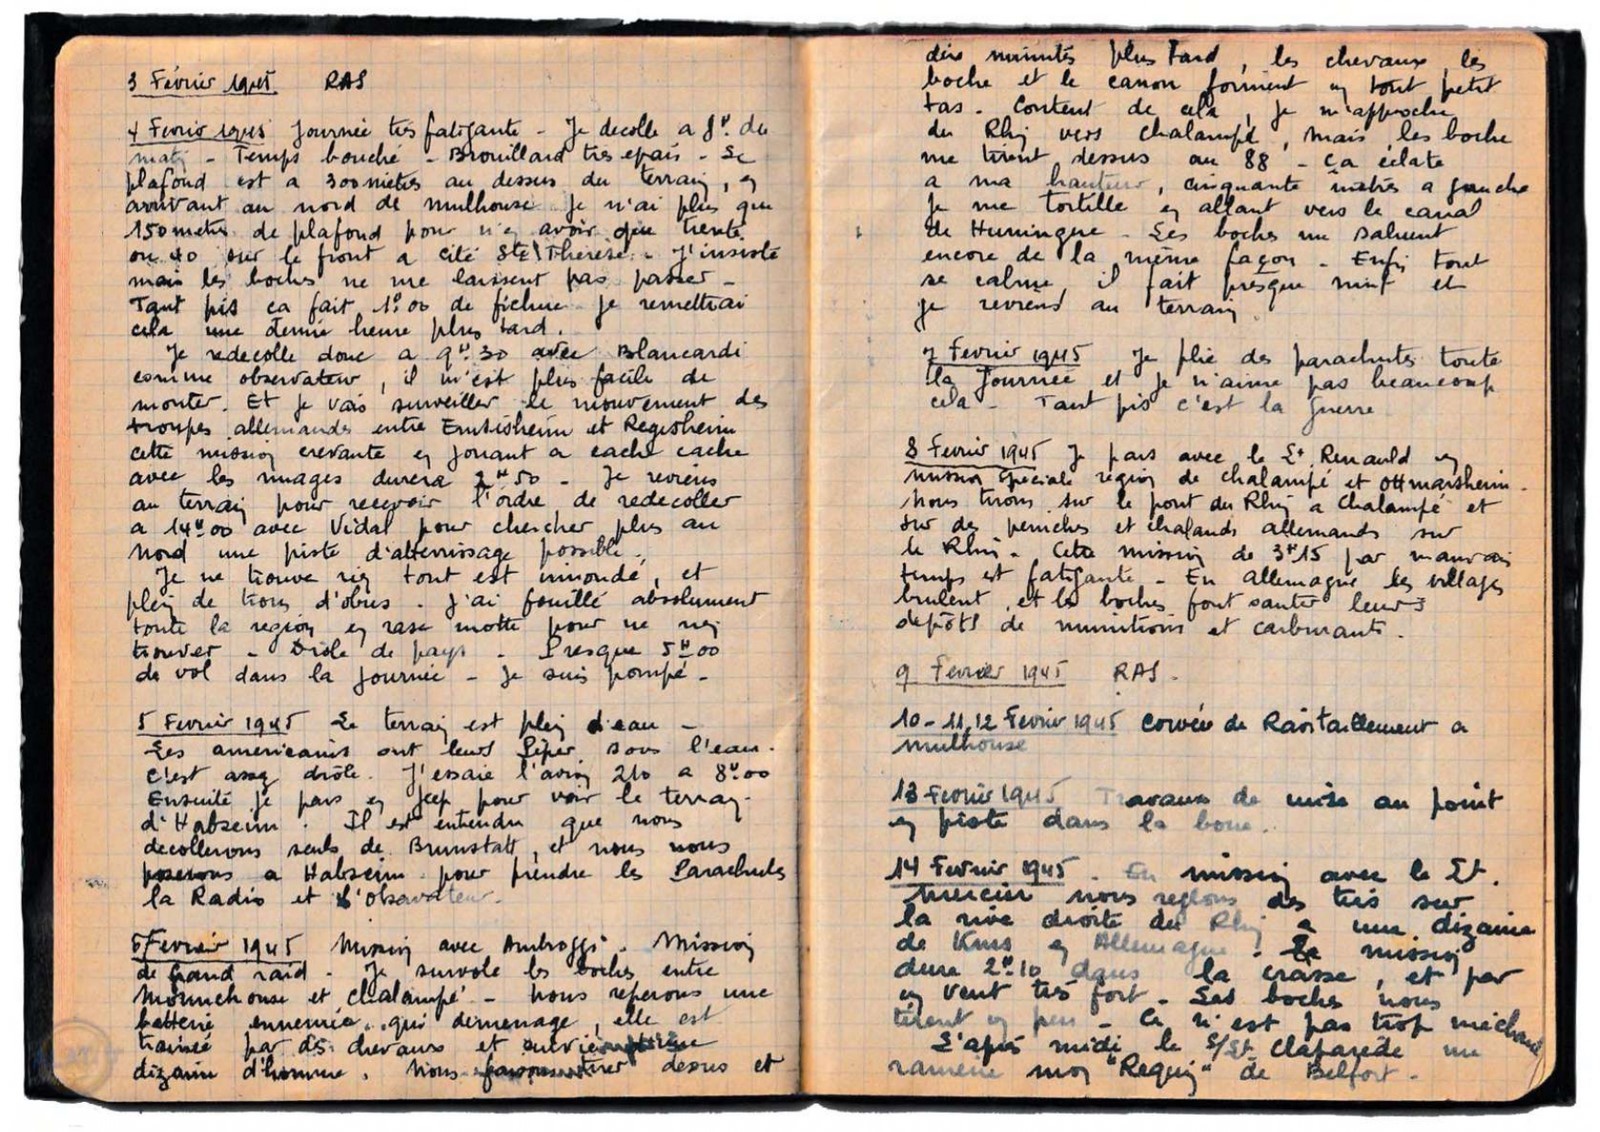 3 Février 1945 RAS
4 Fevrie 1945 Journée très fatigante - Je decolle a 8H du
matin - Temps bouché - Brouillard tres epais - Le
plafond est a 300 mètres au dessus du terrain, en
arrivant au nord de Mulhouse je n'ai plus que
150 metres de plafond pour n'en avoir que trente
ou 40 sur le front a cité Ste Thérèse - J'insiste
mais les boches ne me laissent pas passer -
Tant pis ca fait 1H00 de fichue je remettrai
cela une demie heure plus tard.
Je redecolle donc a 9H30 avec Blancardi
comme observateur, il m'est plus facile de
monter. Et je vais surveiller le mouvement des
troupes allemandes entre Ensisheim et Regisheim
cette mission crevante en jouant a cache cache
avec les nuages durera 2H50 - Je reviens
au terrain pour recevoir l'ordre de redecoller
a 14H00 avec Vidal pour chercher plus au
Nord une piste d'atterrissage possible.
Je ne trouve rien tout est innondé, et
plein de trous d'obus. J'ai fouillé absolument
toute la region en rase motte pour ne rien
trouver - Drôle de pays - Presque 5H00
de vol dans la journée - Je suis pompé -
5 Fevrier 1945 Le terrain est plein d'eau -
Les americains ont leurs Piper sous l'eau.
C'est assez drôle. J'essaie l'avion 210 a 8H00
Ensuite je pars en Jeep pour voir le terrain
d'Habseim. Il est entendu que nous
decollerons seuls de Brunstatt, et nous nous
poserons a Habseim pour prendre les Parachutes
la Radio et l'Observateur.
6 Fevrier 1945 Mission avec Ambroggi. Mission
de grand raid - Je survole les boches entre
Munchouse et Chalampé - Nous reperons une
batterie ennemie qui demenage, elle est
trainée par des chevaux et suivie
dizaine d'homme. Nous faisons tirer dessus et
dix minutes plus tard, les chevaux, les
boche et le canon forment un tout petit
tas - Content de cela, je m'approche
du Rhin vers Chalampé, mais les boche
me tirent dessus au 88 - ça éclate
a ma hauteur, cinquante mètres a gauche
je me tortille en allant vers le canal
de Huningue - Les boches me saluent
encore de la même façon - Enfin tout
se calme, il fait presque nuit et
je reviens au terrain
7 Fevrier 1945 Je plie des parachutes toute
la journée et je n'aime pas beaucoup
cela - Tant pis c'est la guerre
8 Fevrier 1945 Je pars avec le Lt Renauld en
mission speciale region de Chalampé et Ottmarsheim -
Nous tirons sur le pont du Rhin a Chalampé et
sur des peniches et chalands allemands sur
le Rhin - Cette mission de 3H15 par mauvais
temps est fatigante - En Allemagne les villages
brulent, et les boches font sauter leurs
depôts de munitions et carburants.
9 Fevrier 1945 RAS.
10-11,12 Fevrier 1945 Corvée de Ravitaillement a
Mulhouse
13 Fevrier 1945 Travaux de mise au point
en piste dans la boue.
14 Fevrier 1945. En mission avec le Lt.
Mercier nous reglons des tirs sur
la rive droite du Rhin a une dizaine
de Kms en Allemagne. La mission
dure 2H10 dans la crasse, et par
un vent très fort - Les boches nous
tirent un peu - Ce n'est pas trop méchant
L'après midi le S/Lt Claparède me
ramène mon "Requin" de Belfort -